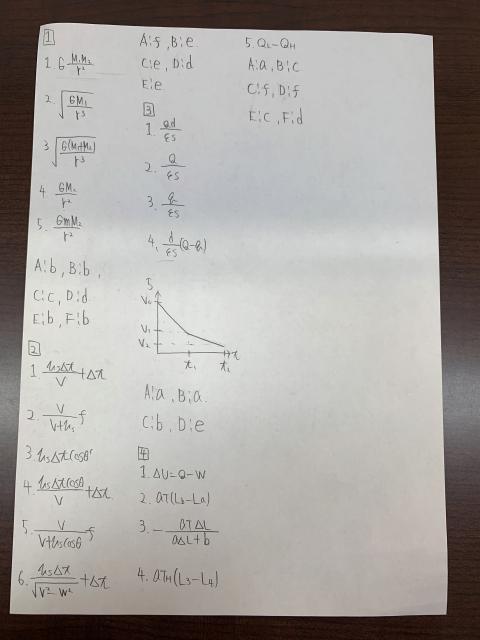 1
1. G M₁M₂/r²
2. √(GM₁/r³)
3 √(G(M₁+M₂)/r³)
4 GM₂/r²
5. GmM₂/r²
A:b, B:b,
C:c, D:d
E:b, F:b
2
1. usΔt/V+Δt
2. V/(V+us) f
3 usΔtcosθ
4. usΔtcosθ/V+Δt
5. V/(V+uscosθ) f
6. usΔt/√(V²-W²)+Δt
A:f, B:e
C:e, D:d
E:e
3
1. Qd/εS
2. Q/εS
3. q/εS
4. d/εS(Q-q)
5
V₀
V₁
V₂
t₁
t₂
t
A:a, B:a.
C:b, D:e
4
1. ΔU=Q-W
2. aT(L₃-La)
3. - aTΔL/(aΔL+b)
4. aTH(L₃-L₄)
5. QL-QH
A:a, B:c
C:f, D:f
E:c, F:d